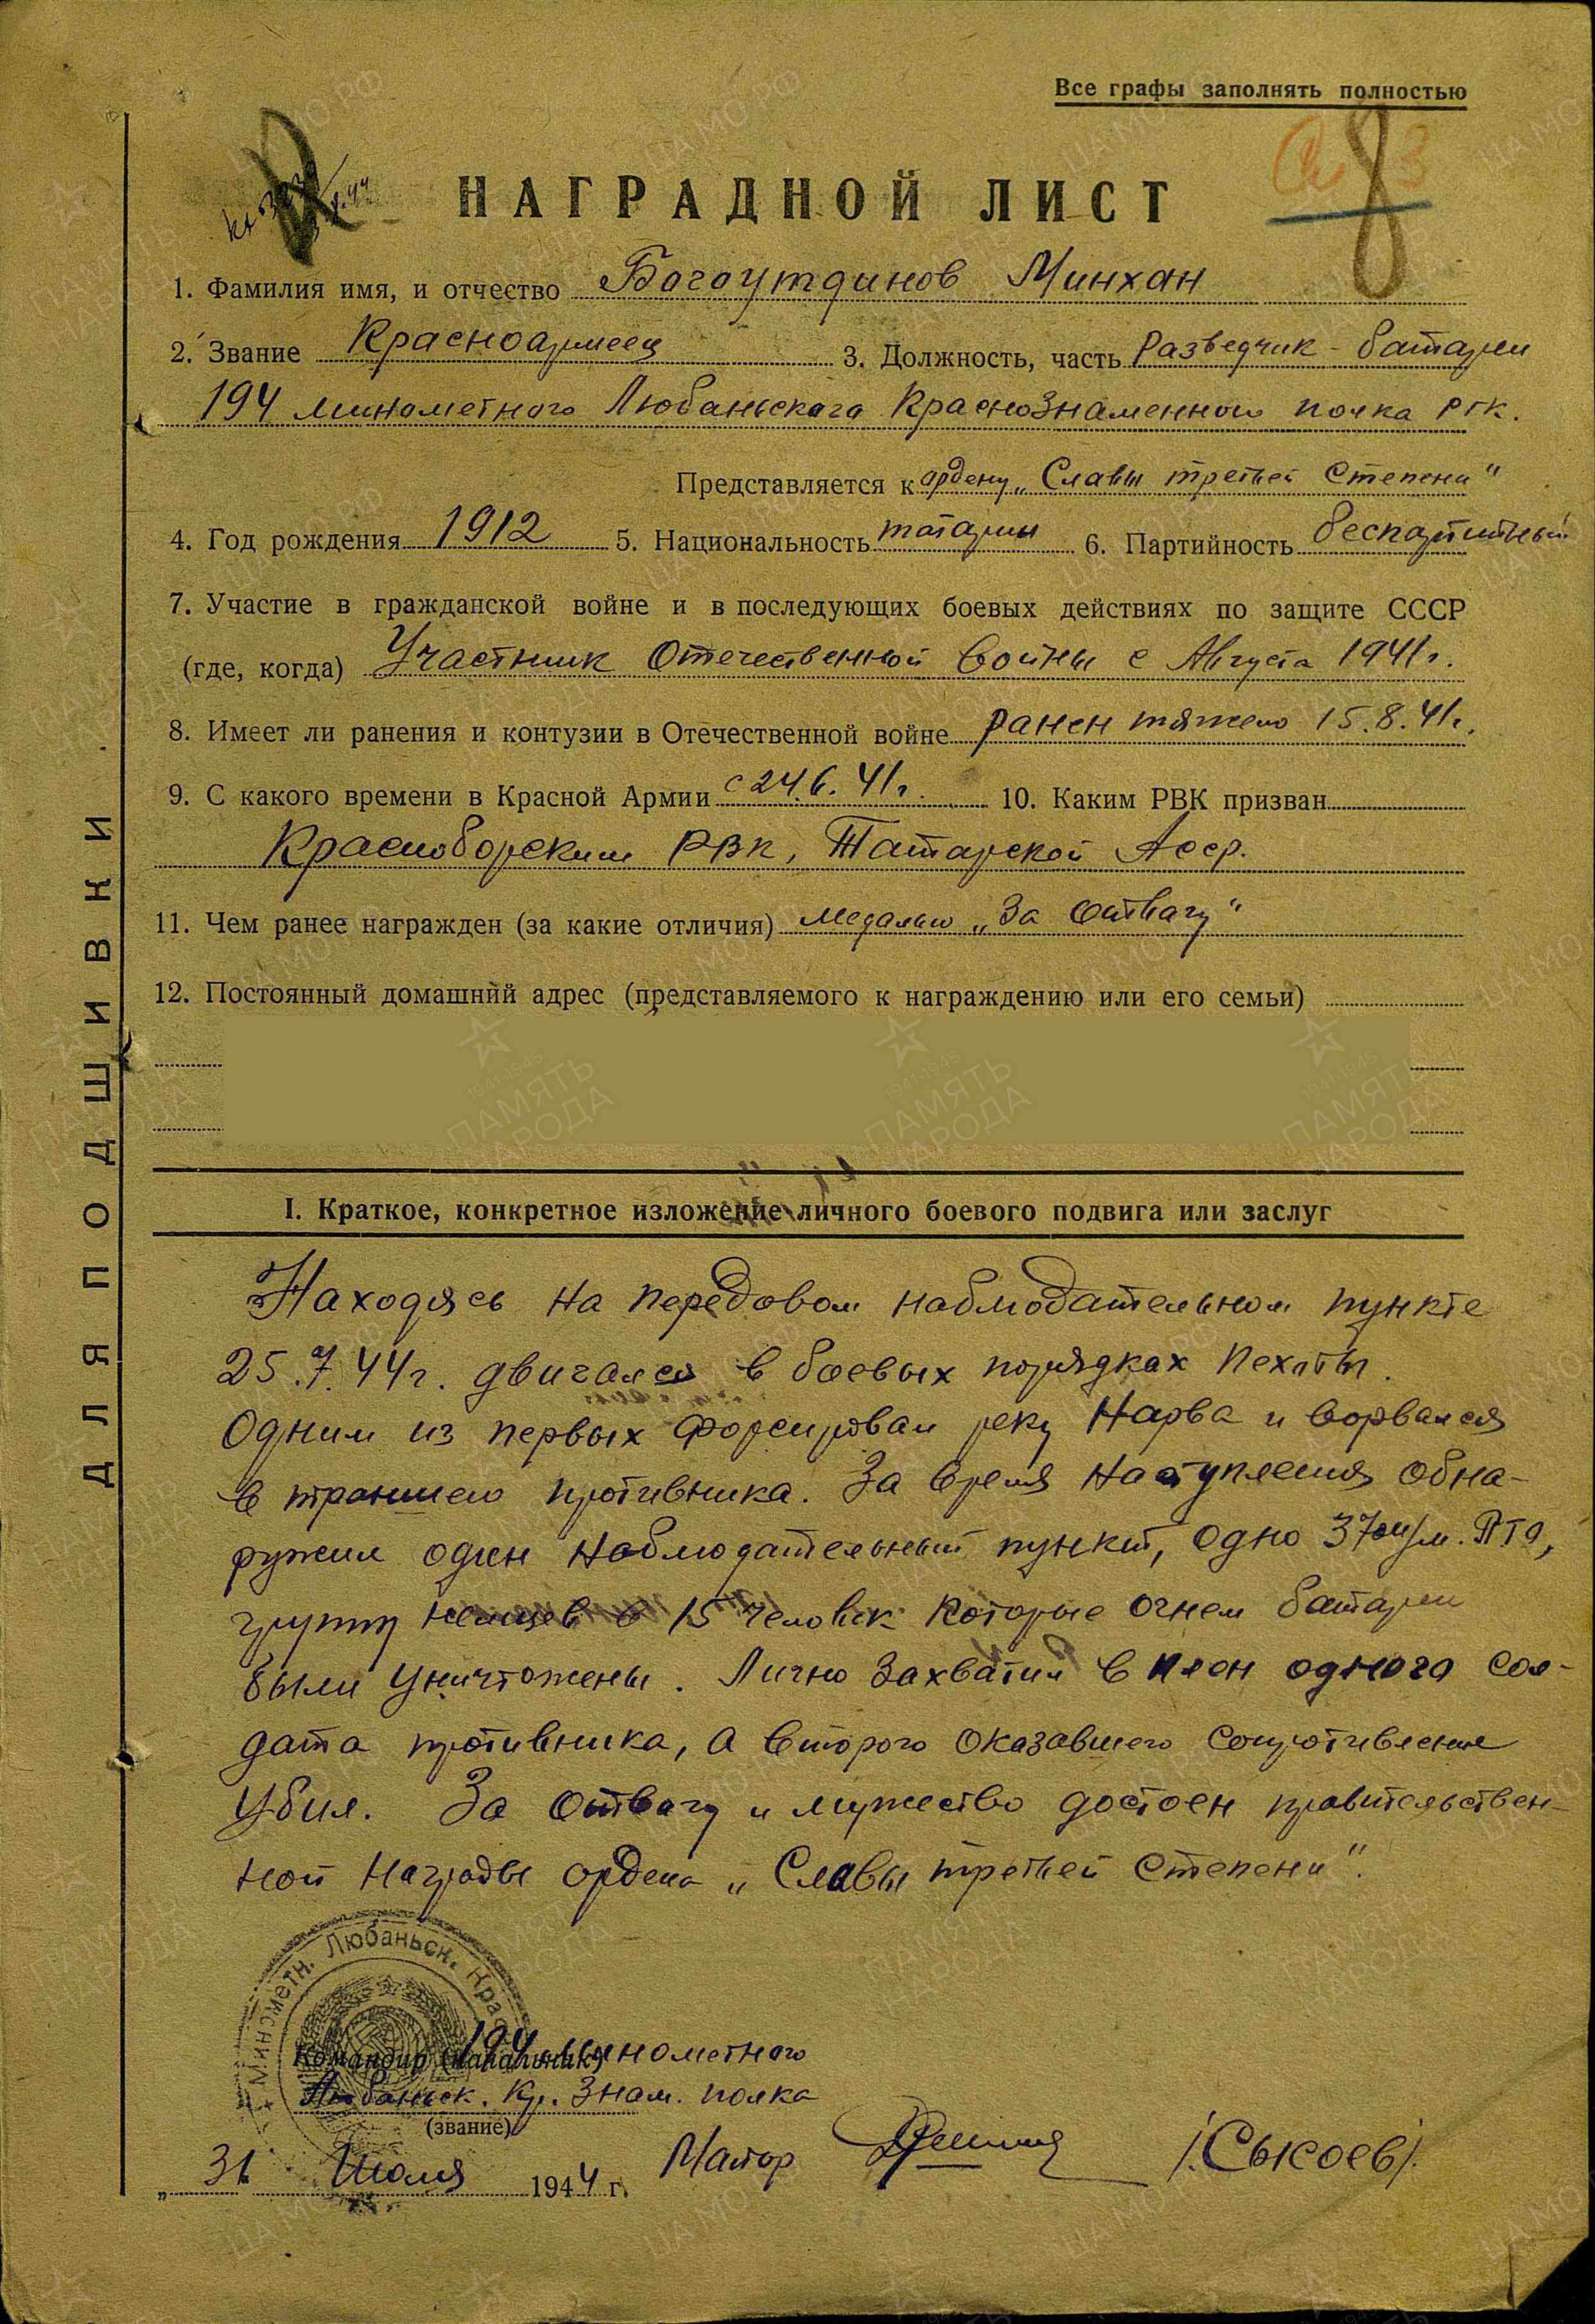 Все графы заполнять полностью
8
НАГРАДНОЙ ЛИСТ
1. Фамилия имя, и отчество Богоутдинов Минхан
2. Звание Красноармеец 3. Должность, часть Разведчик - батареи
194 минометного Любаньского Краснознаменного полка РГК.
Представляется к ордену „Славы третьей степени"
4. Год рождения 1912 5. Национальность татарин 6. Партийность беспартийный
7. Участие в гражданской войне и в последующих боевых действиях по защите СССР
(где, когда) Участник Отечественной войны с Августа 1941г.
8. Имеет ли ранения и контузии в Отечественной войне ранен тяжело 15.8.41г.
9. С какого времени в Красной Армии с 24.6.41г. 10. Каким РВК призван
Красноборским РВК, Татарской Асср.
11. Чем ранее награжден (за какие отличия) медалью „За отвагу"
12. Постоянный домашний адрес (представляемого к награждению или его семьи)
I. Краткое, конкретное изложение личного боевого подвига или заслуг
Находясь на передовом наблюдательном пункте
25.7.44г. двигался в боевых порядках пехоты.
Одним из первых форсировал реку Нарва и ворвался
в траншею противника. За время наступления обна-
ружил один наблюдательный пункт, одно 37м/м. ПТО,
группу немцев в 15 человек которые огнем батареи
были уничтожены. Лично захватил в плен одного сол-
дата противника, а второго оказавшего сопротивление
убил. За отвагу и мужество достоен правительствен-
ной награды ордена „Славы третьей степени".
Минометн. Любаньск. Крас
Командир (начальник) 194 минометного
Любаньск. Кр. Знам. полка
(звание)
„31 Июля 1944 г. Майор /Сысоев/.
ДЛЯ ПОДШИВКИ
ПАМЯТЬ НАРОДА
ЦА МО РФ